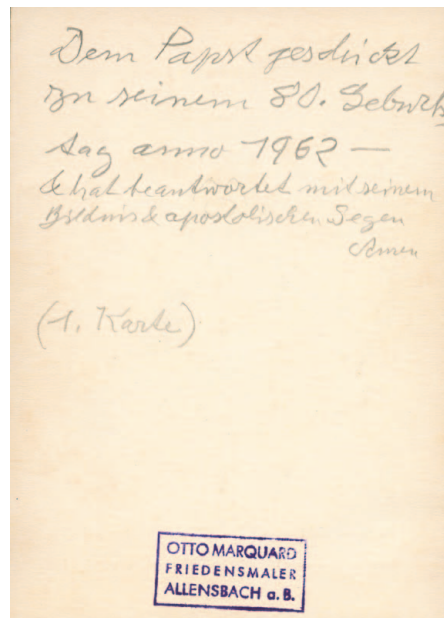 Dem Papst geschickt
zu seinem 80. Geburts
tag anno 1962 —
& hat beantwortet mit seinem
Bildnis & apostolischen Segen
Amen
(1. Karte)
OTTO MARQUARD
FRIEDENSMALER
ALLENSBACH a. B.